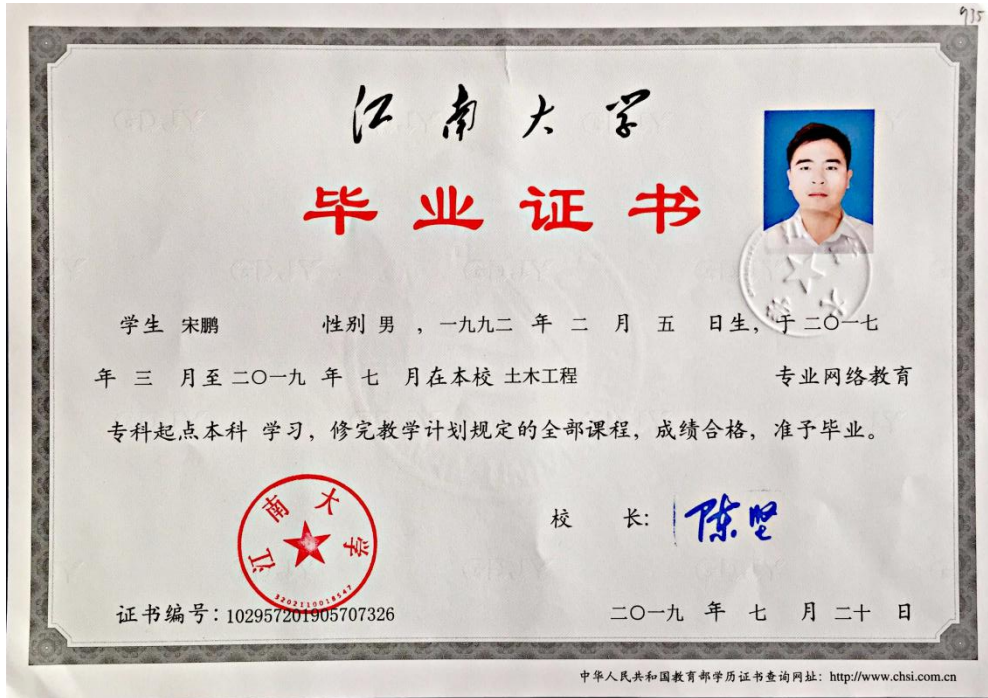 935
江南大学
毕业证书
学生 宋鹏 性别 男 ，一九九二 年 二 月 五 日生，于二〇一七
年 三 月至 二〇一九 年 七 月在本校 土木工程 专业网络教育
专科起点本科 学习，修完教学计划规定的全部课程，成绩合格，准予毕业。
江南大学
3202110018547
校 长: 陈坚
证书编号：102957201905707326
二〇一九 年 七 月 二十 日
中华人民共和国教育部学历证书查询网址：http://www.chsi.com.cn